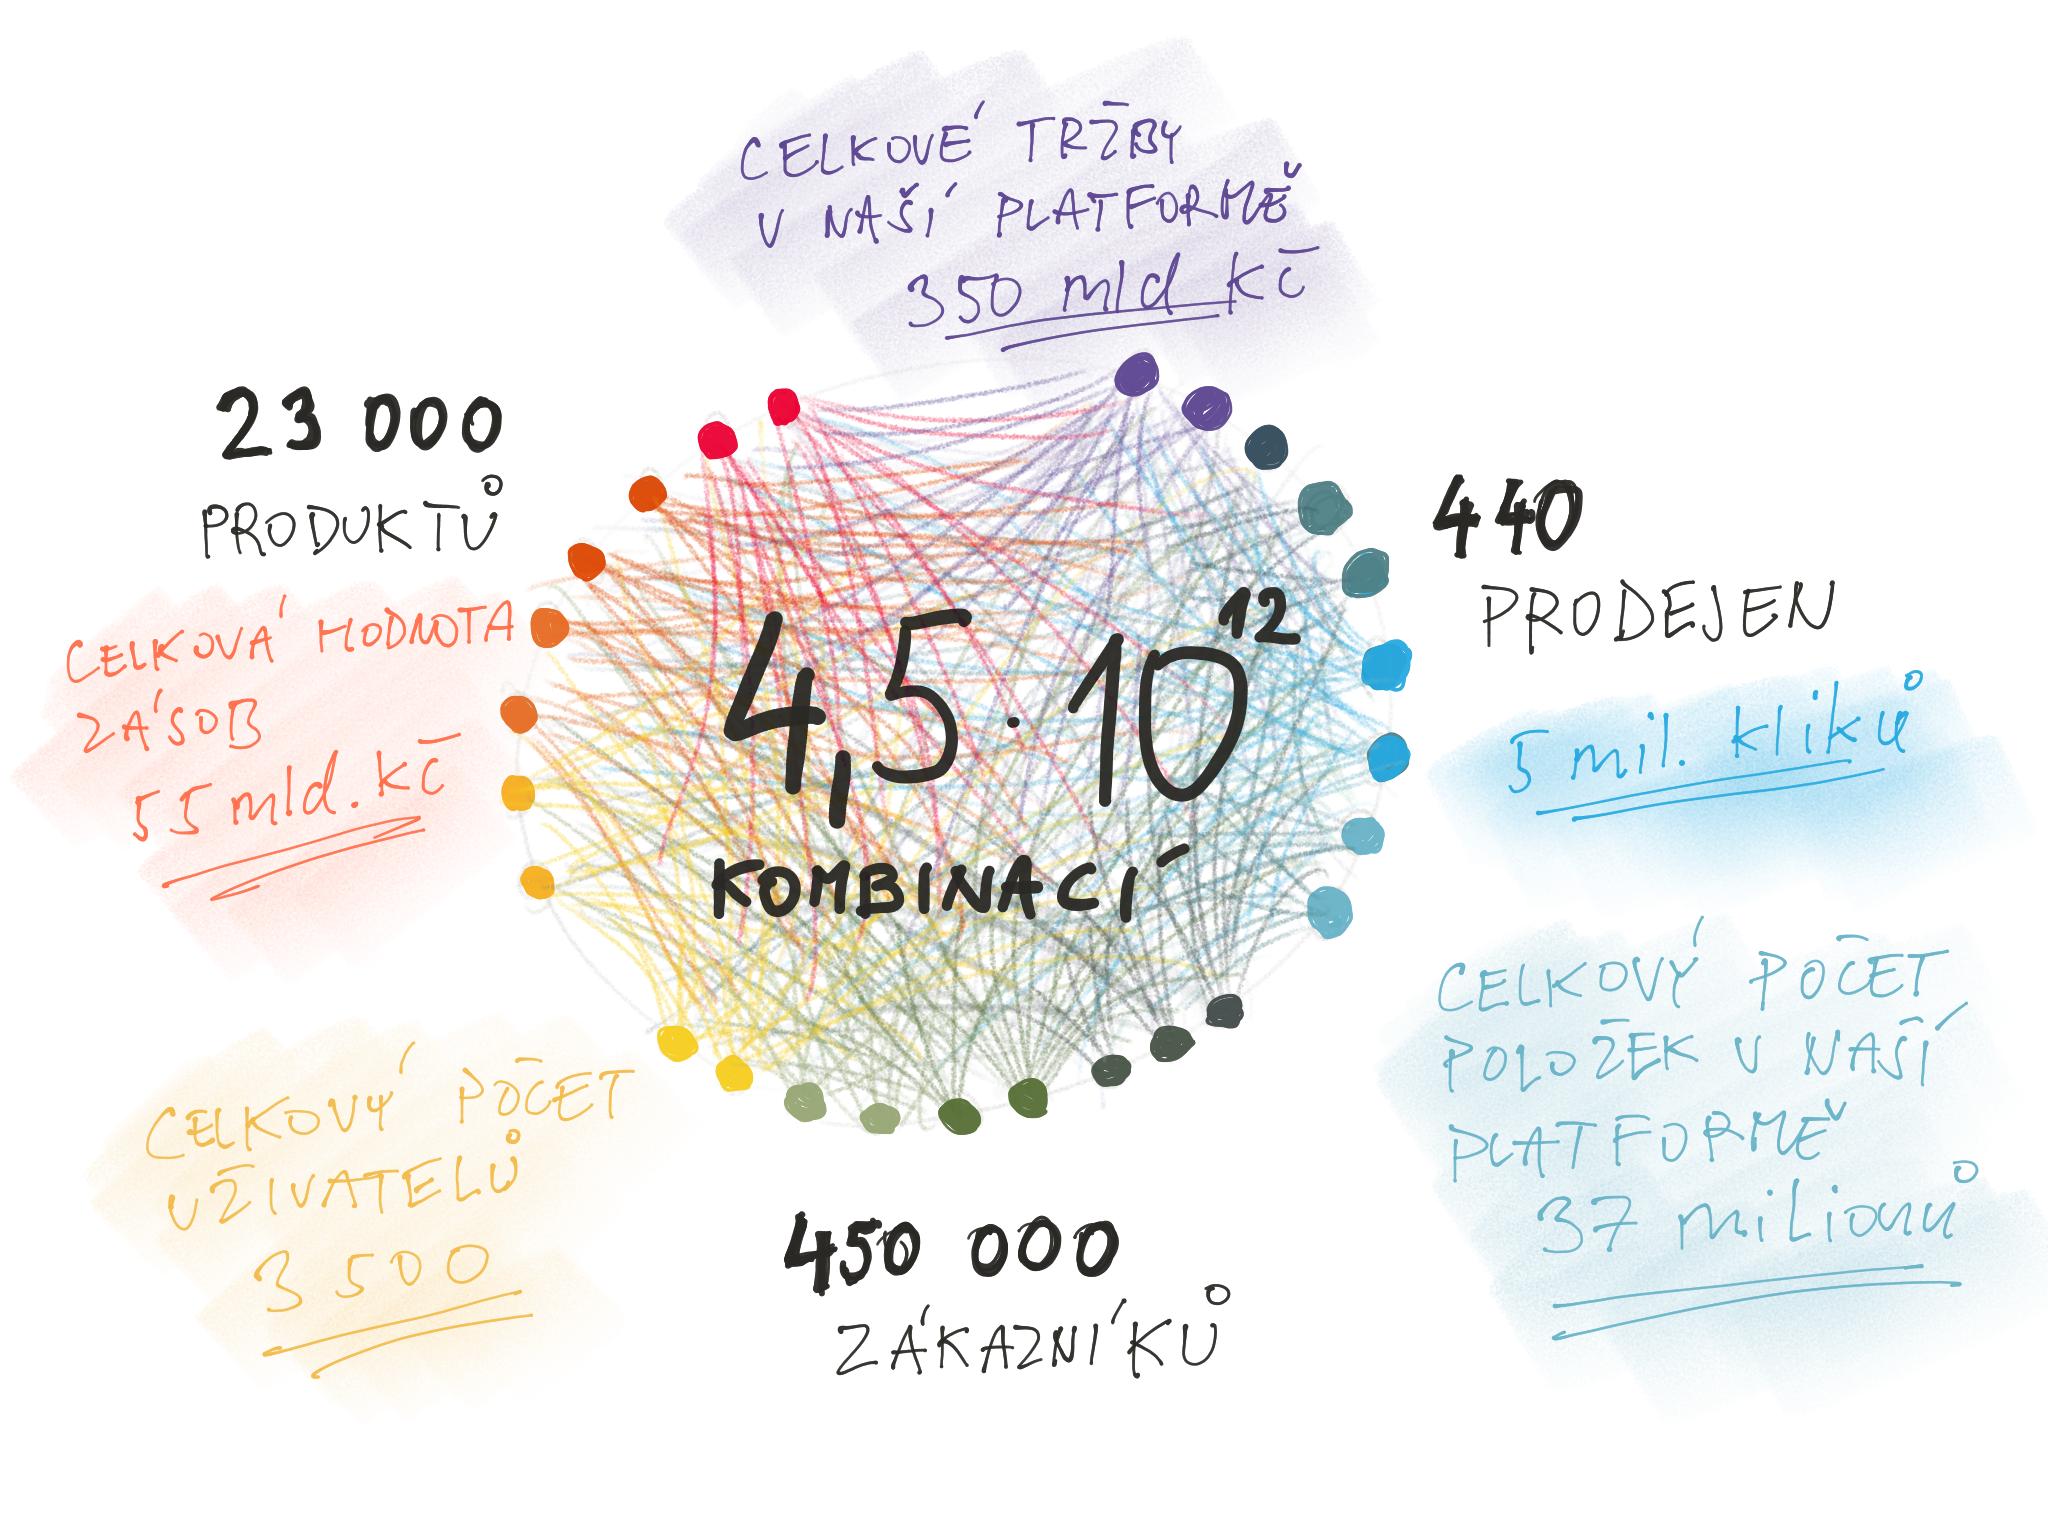 CELKOVÉ TRŽBY
V NAŠÍ PLATFORMĚ
350 mld Kč
23 000
PRODUKTŮ
CELKOVÁ HODNOTA
ZÁSOB
55 mld. Kč
440
PRODEJEN
5 mil. kliků
4,5·10¹²
KOMBINACÍ
CELKOVÝ POČET
POLOŽEK V NAŠÍ
PLATFORMĚ
37 milionů
CELKOVÝ POČET
UŽIVATELŮ
3 500
450 000
ZÁKAZNÍKŮ